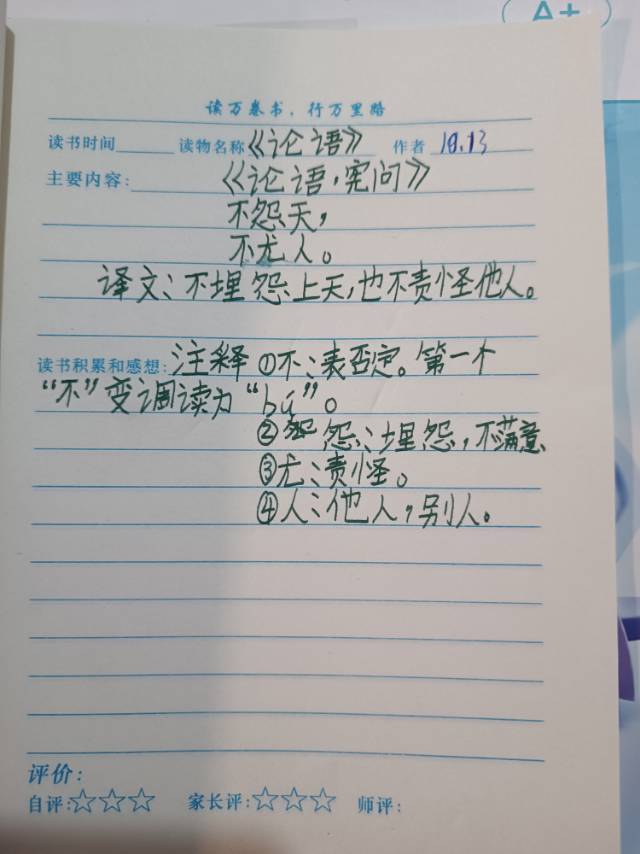 A+
读万卷书，行万里路
读书时间 读物名称《论语》 作者 10.13
主要内容：《论语·宪问》
不怨天，
不尤人。
译文：不埋怨上天，也不责怪他人。
读书积累和感想：注释①不：表否定。第一个
“不”变调读为“bú”。
②怨：埋怨，不满意
③尤：责怪。
④人：他人，别人。
评价：
自评：☆☆☆ 家长评：☆☆☆ 师评：